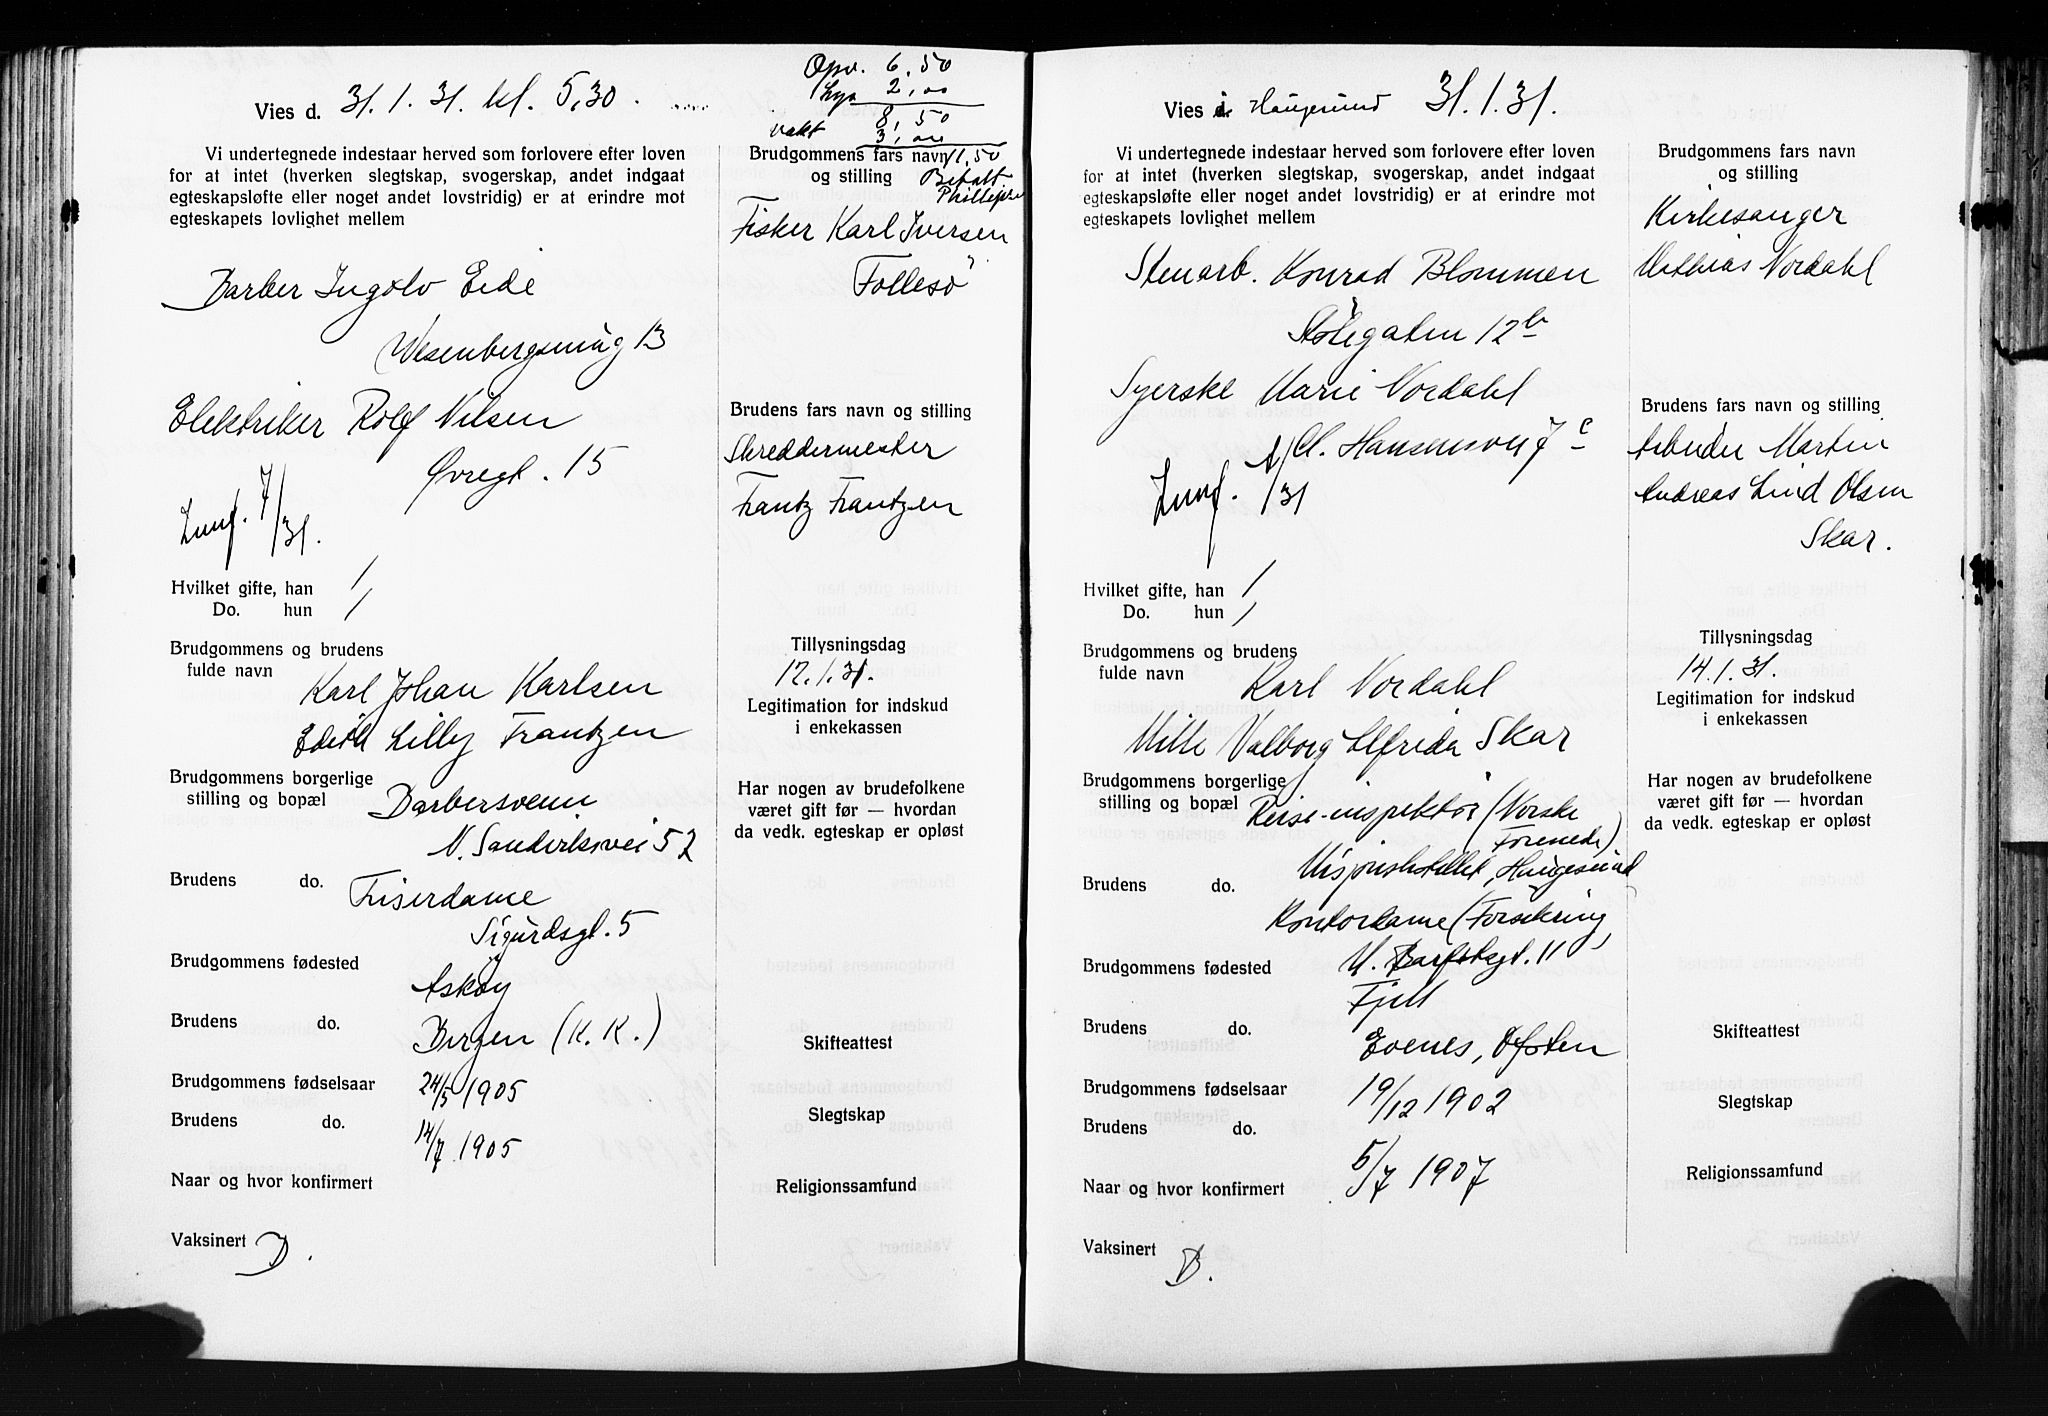 Vies d. 31.1.31. kl. 5,30.
Opv. 6,50
Lys 2,00
8,50
vakt 3,00
11,50
Betalt
Vi undertegnede indestaar herved som forlovere efter loven
for at intet (hverken slegtskap, svogerskap, andet indgaat
egteskapsløfte eller noget andet lovstridig) er at erindre mot
egteskapets lovlighet mellem
Barber Ingolv Eide
Wesenbergsmug 13
Elektriker Rolf Nilsen
Øvregt. 15
7/31.
Hvilket gifte, han 1
Do. hun 1
Brudgommens og brudens
fulde navn
Karl Johan Karlsen
Edith Lilly Frantzen
Brudgommens borgerlige
stilling og bopæl
Barbersvenn
N. Sandviksvei 52
Brudens do.
Friserdame
Sigurdsgt. 5
Brudgommens fødested
Askøy
Brudens do.
Bergen (K. K.)
Brudgommens fødselsaar 24/5 1905
Brudens do. 14/7 1905
Naar og hvor konfirmert
Vaksinert D.
Brudgommens fars navn
og stilling
Fisker Karl Iversen
Follesø
Brudens fars navn og stilling
Skreddermester
Frantz Frantzen
Tillysningsdag
12.1.31.
Legitimation for indskud
i enkekassen
Har nogen av brudefolkene
været gift før — hvordan
da vedk. egteskap er opløst
Skifteattest
Slegtskap
Religionssamfund
Vies i Haugesund 31.1.31.
Vi undertegnede indestaar herved som forlovere efter loven
for at intet (hverken slegtskap, svogerskap, andet indgaat
egteskapsløfte eller noget andet lovstridig) er at erindre mot
egteskapets lovlighet mellem
Stenarb. Konrad Blommen
Stølegaten 12b
Syerske Marie Nordahl
Cl. Hansensvei 7c
/31
Hvilket gifte, han 1
Do. hun 1
Brudgommens og brudens
fulde navn
Karl Nordahl
Mille Valborg Elfrida Skar
Brudgommens borgerlige
stilling og bopæl
Reise-inspektør (Norske
Forenede)
Misjonshotellet, Haugesund
Brudens do.
Kontordame (Forsikring)
Brudgommens fødested
Fjell
Brudens do.
Evenes, Ofoten
Brudgommens fødselsaar 19/12 1902
Brudens do.
5/7 1907
Naar og hvor konfirmert
Vaksinert B.
Brudgommens fars navn
og stilling
Kirkesanger
Mathias Nordahl
Brudens fars navn og stilling
Arbeider Martin
Andreas Lind Olsen
Skar.
Tillysningsdag
14.1.31.
Legitimation for indskud
i enkekassen
Har nogen av brudefolkene
været gift før — hvordan
da vedk. egteskap er opløst
Skifteattest
Slegtskap
Religionssamfund